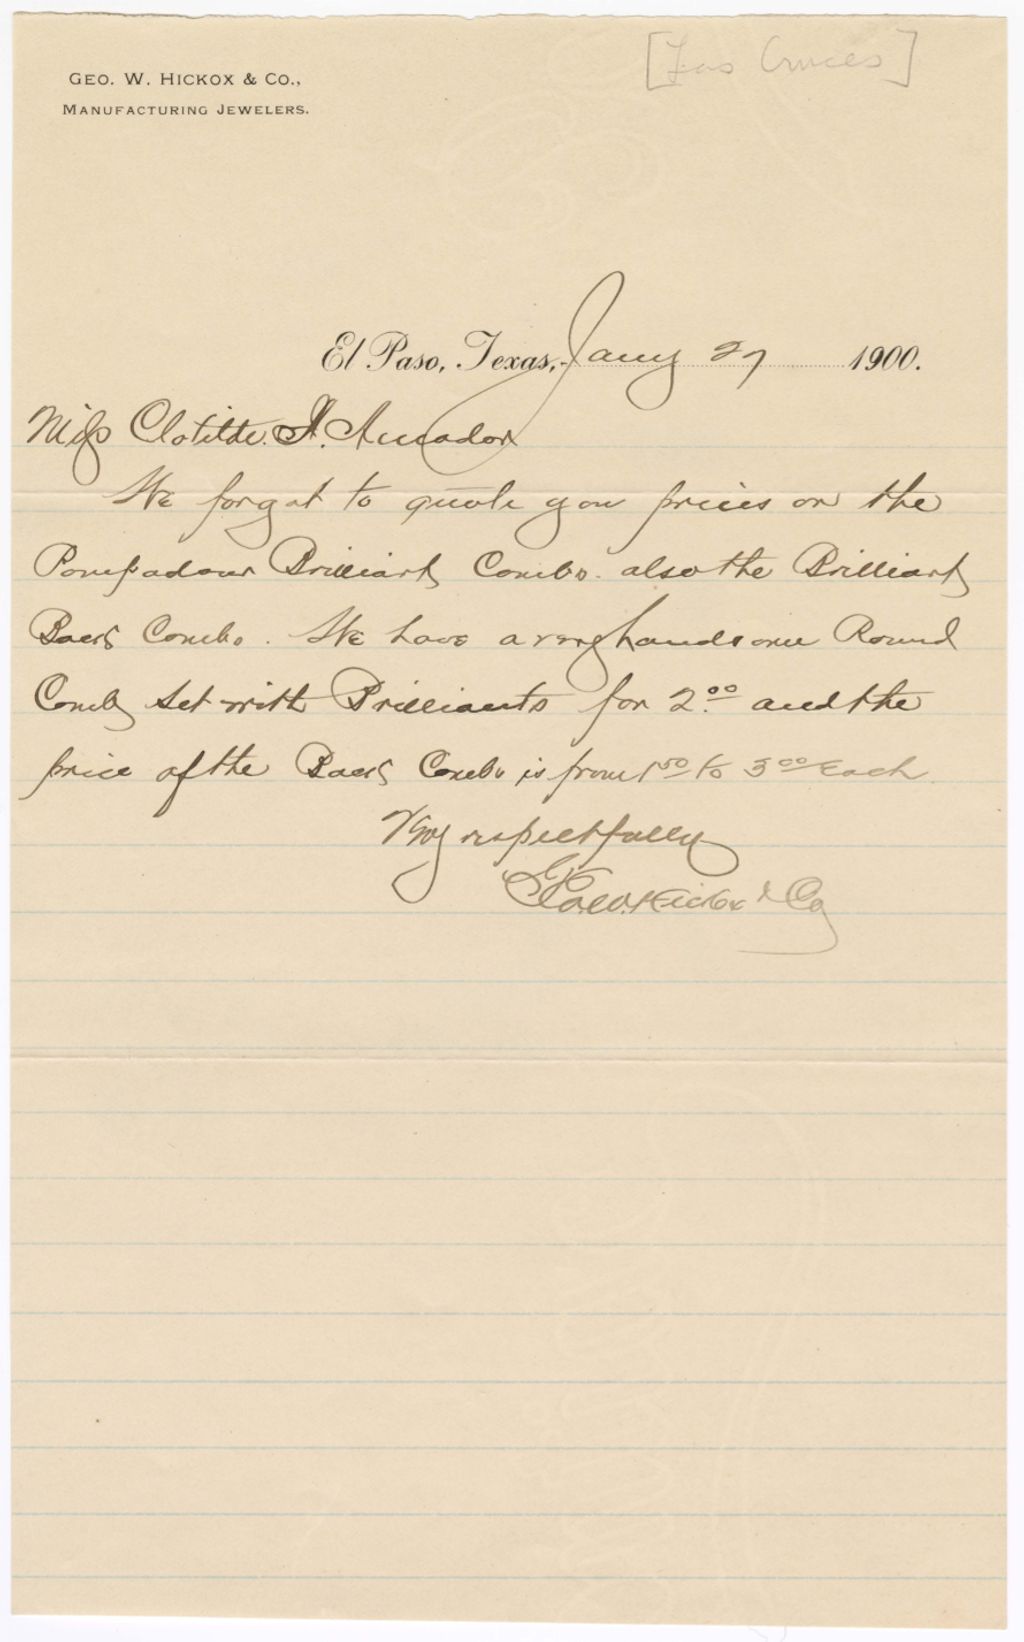 [Las Cruces]
GEO. W. HICKOX & CO.,
MANUFACTURING JEWELERS.
El Paso, Texas, Jany 27 1900.
Miss Clotilde A. Amador
We forgot to quote you prices on the
Pompadour Brilliant Combs. also the Brilliant
Back Combs. We have a very handsome Round
Comb set with Brilliants for 2.00 and the
price of the Back Combs is from 1 50 to 3 00 Each
Very respectfully
Geo. W. Hickox & Co